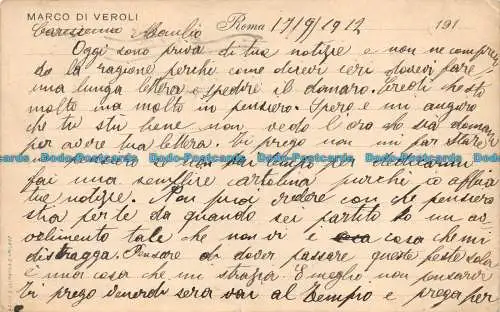 MARCO DI VEROLI
Carissimo Manlio Roma 17/9/1912 191
Oggi sono priva di tue notizie e non ne compren
do la ragione perchè come dicevi ieri dovevi fare
una lunga lettera e spedire il denaro. Credi che sto
molto ma molto in pensiero. Spero e mi auguro
che tu stia bene non vedo l'ora che sia domani
per avere tua lettera. Ti prego non mi far stare
in pensiero non tempo per
fai una semplice cartolina purchè io abbia
tue notizie. Non puoi credere con che pensiero
sto per te da quando sei partito. Io un av
vilimento tale che non vi è cosa che mi
distragga. Pensare di dover passare queste feste sola
è una cosa che mi strazia. E meglio non pensarvi
Ti prego venerdì sera vai al Tempio e prega per
Dodo-Postcards Dodo-Postcards Dodo-Postcards